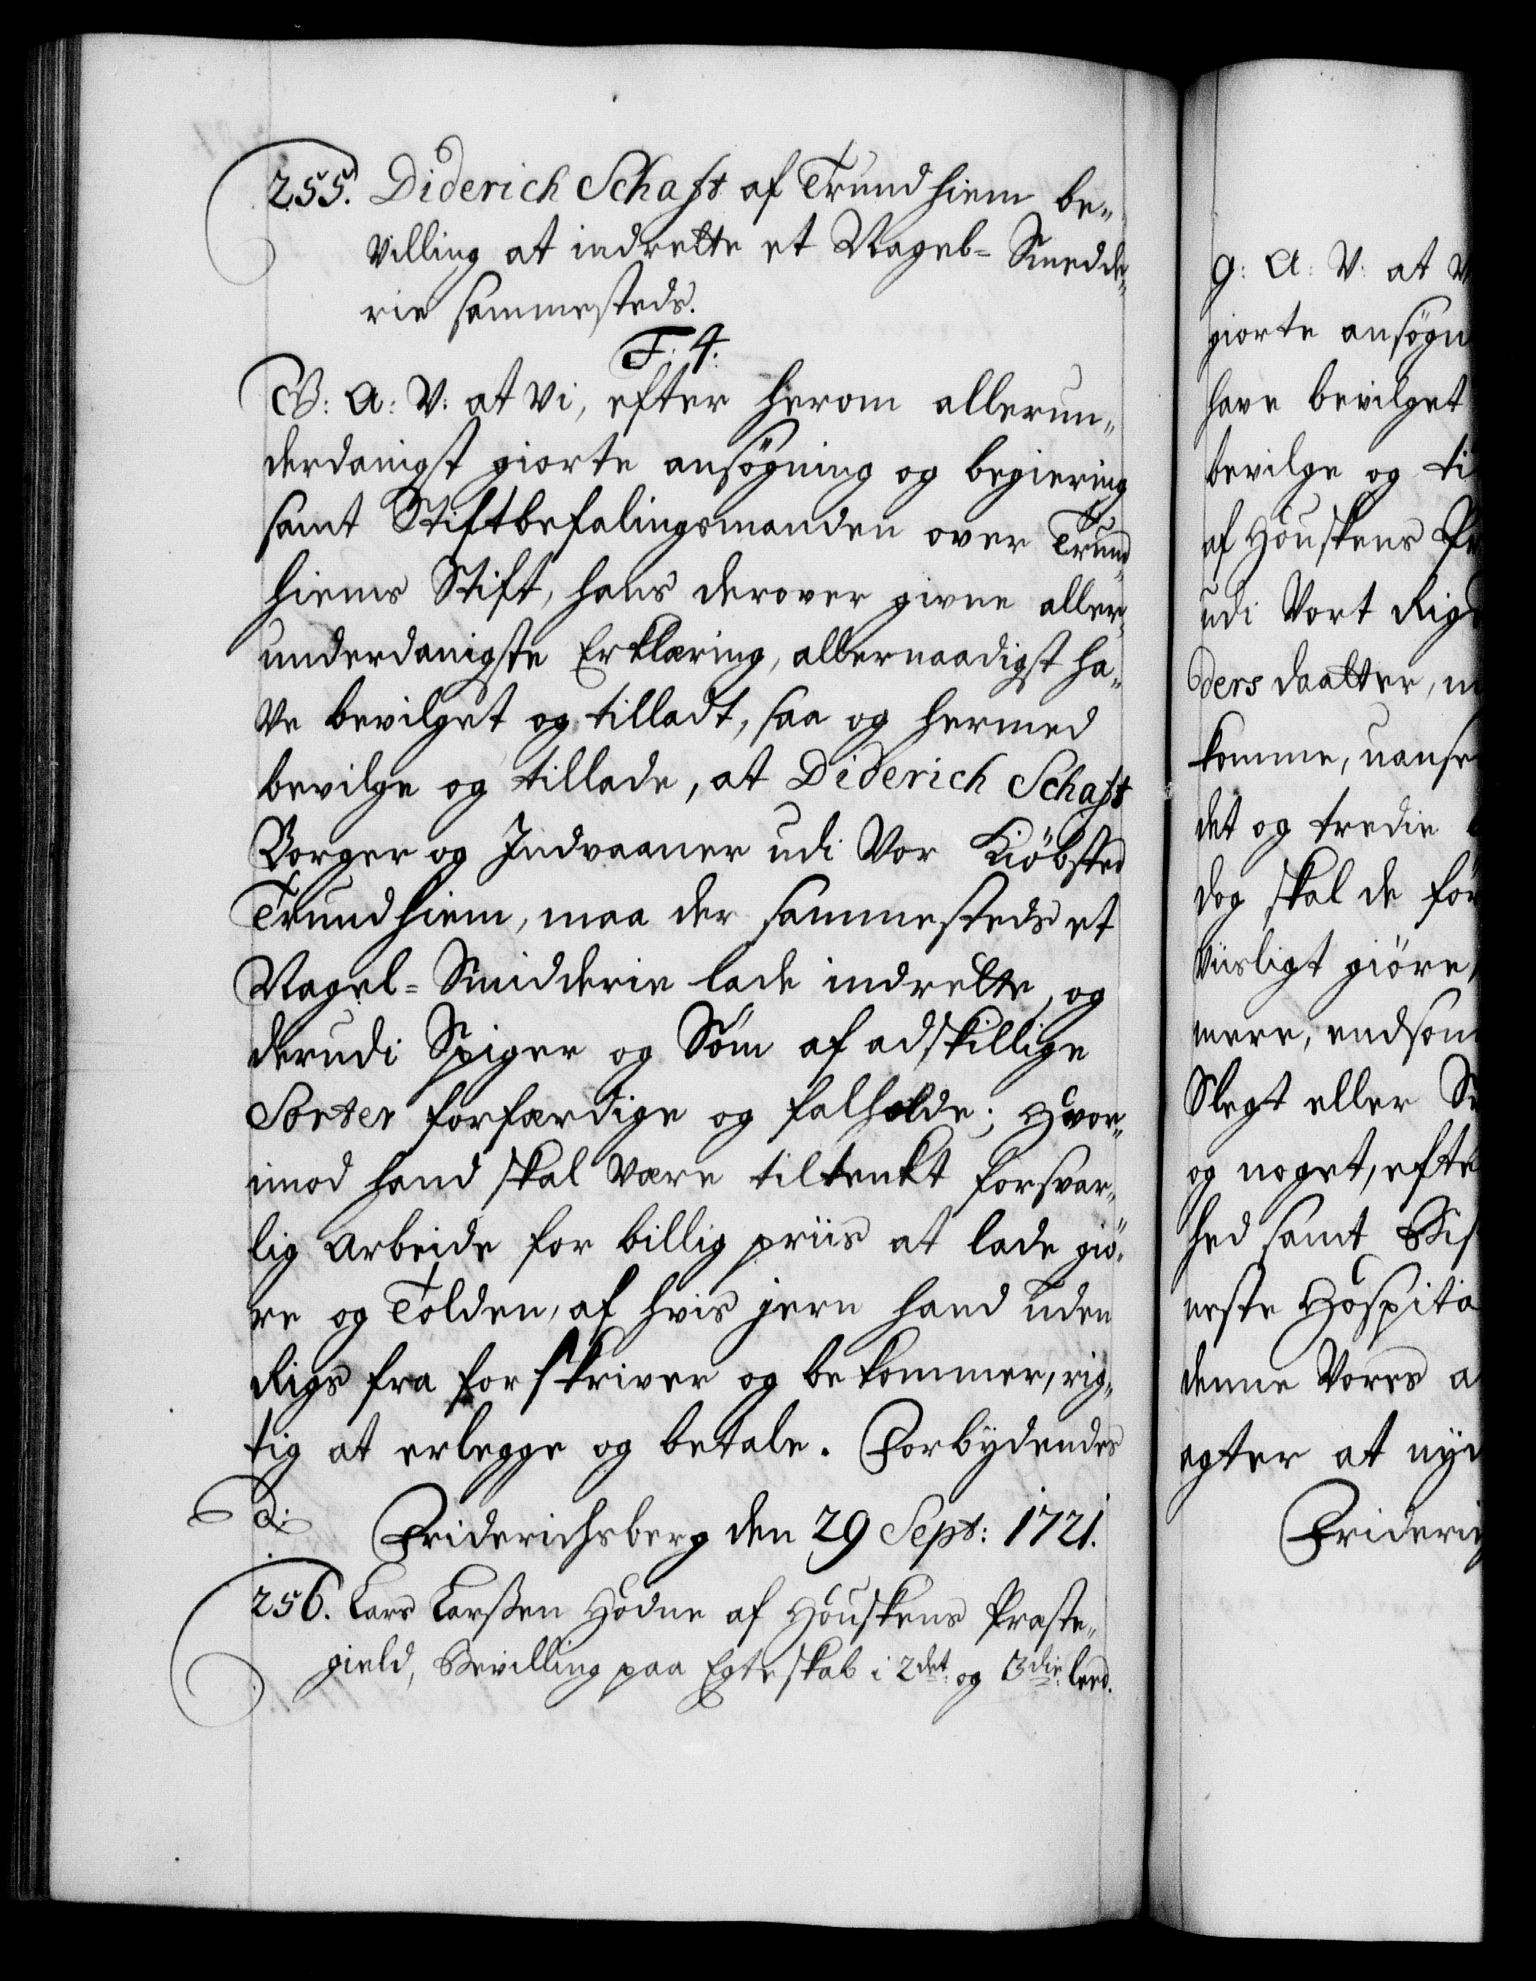 255. Diderich Schaft af Trundhiem be„
villing at indrette et Nagel-Smedde„
rie sammesteds.
F: 4:
G: A: V: at Vi, efter herom allerun„
derdanigst giorte ansøgning og begiering
samt Stiftbefalingsmanden over Trund„
hiems Stift, hans derover givne aller„
underdanigste Erklæring, allernaadigst ha„
ve bevilget og tilladt, saa og hermed
bevilge og tillade, at Diderich Schaft
Borger og Indvaaner udi Vor Kiöbsted
Trundhiem, maa der sammesteds et
Nagel-Smidderie lade indrette, og
derudi Spiger og Söm af adskillige
Sorter forfærdige og falholde; Hvor„
imod hand skal være tiltenkt forsvar„
lig Arbeide for billig priis at lade giö„
re og Tolden, af hvis jern hand uden
Rigs fra forskriver og bekommer, rig„
tig at erlegge og betale. Forbydendes
&:
Friderichsberg den 29 Sept: 1721.
256. Lars Larßen Hodne af Houskens Præste„
gield, Bevilling paa Egteskab i 2det og 3die leed.
g: A: V: at V
giorte ansøgn
have bevilget
bevilge og ti
af Houskens Pr
udi Vort Rig
ders daatter, m
komme, uanse
det og tredie
dog skal de för
viisligt giöre,
mere, endsom
Slegt eller S
og noget, efte
hed samt Bis
neste Hospita
denne Vores a
egter at nyd
Friderich